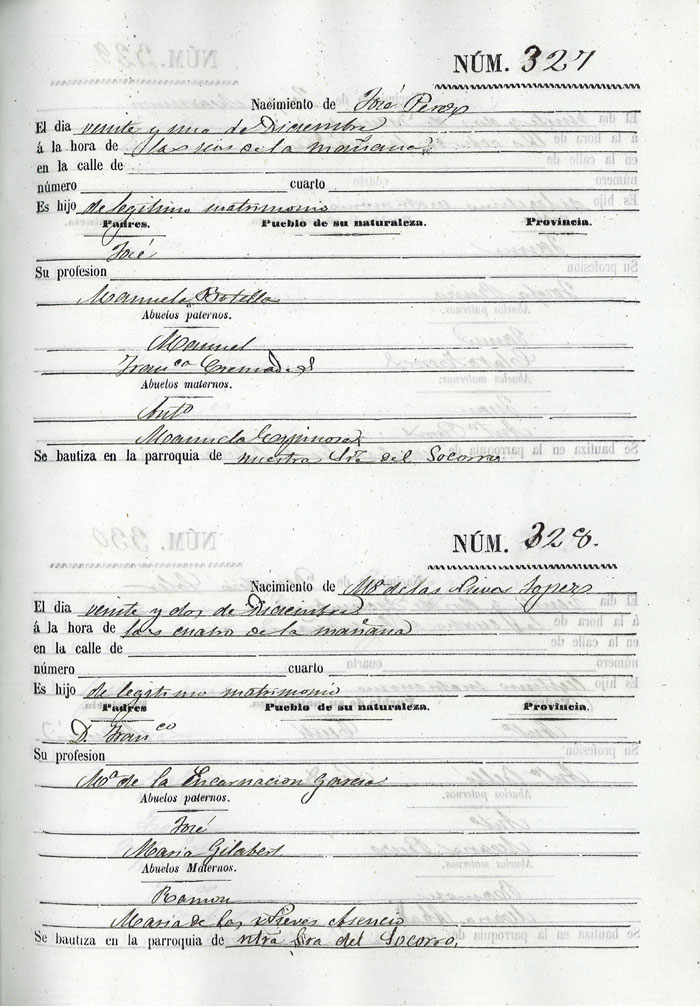 NÚM. 327
Nacimiento de José Perez
El dia veinte y uno de Diciembre
á la hora de las seis de la mañana
en la calle de
número cuarto
Es hijo de legitimo matrimonio
Padres. Pueblo de su naturaleza. Provincia.
José
Su profesion
Manuela Botella
Abuelos paternos.
Manuel
Franca Cremades
Abuelos maternos.
Anto
Manuela Espinosa
Se bautiza en la parroquia de nuestra Sra del Socorro
NÚM. 328.
Nacimiento de Ma de las Nieves Lopez
El dia veinte y dos de Diciembre
á la hora de las cuatro de la mañana
en la calle de
número cuarto
Es hijo de legitimo matrimonio
Padres Pueblo de su naturaleza. Provincia.
D. Franco
Su profesion
Ma de la Encarnacion Garcia
Abuelos paternos.
José
Maria Gilabert
Abuelos Maternos.
Ramon
Maria de las Nieves Asencio
Se bautiza en la parroquia de ntra Sra del Socorro.